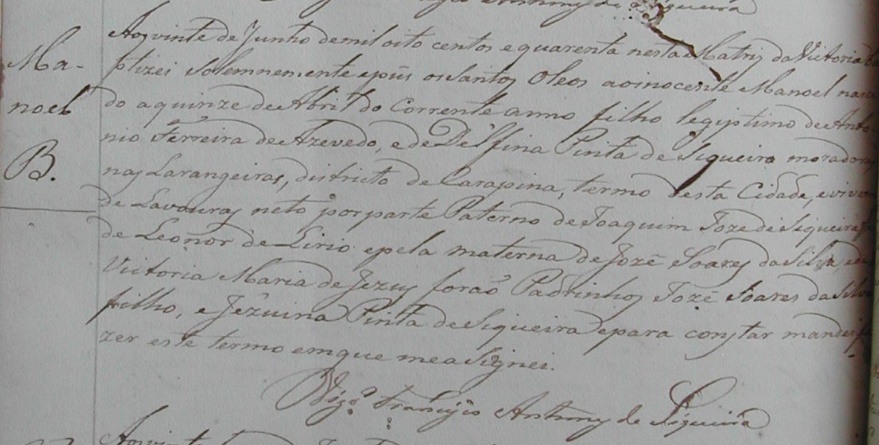 Antony de Siqueira
Ma-
noel
B.
Aos vinte de Junho de mil oito centos e quarenta nesta Matriz da Victoria ba
ptizei Solemnemente e pûs os Santos Oleos ao inocente Manoel nasci
do a quinze de Abril do Corrente anno filho legiptimo de Anto
nio Ferreira de Azevedo, e de Delfina Pinta de Siqueira moradores
nas Larangeiras, districto de Carapina, termo desta Cidade, e vivem
de Lavouras neto por parte Paterno de Joaquim Joze de Siqueira, e
de Leonor de Lirio e pela materna de Jozé Soares da Silva, e de
Victoria Maria de Jezus forão Padrinhos Jozé Soares da Silva
filho, e Jezuina Pinta de Siqueira e para constar mandei fa
zer este termo em que me asignei.
Vigº Francisco Antony de Siqueira
Aos vinte